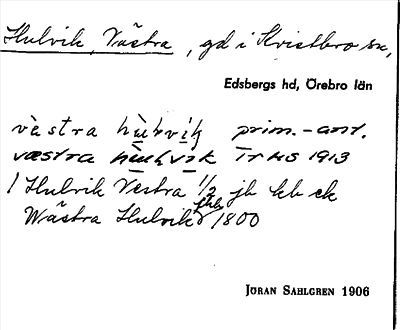 Hulvik, Västra, gd i Kvistbro sn,
Edsbergs hd, Örebro län
västra hulvik prim.-ant.
væstra hulvik IT HS 1913
1 Hulvik Vestra 1/2 jb kb ek
Wästra Hulvik 1800
JÖRAN SAHLGREN 1906